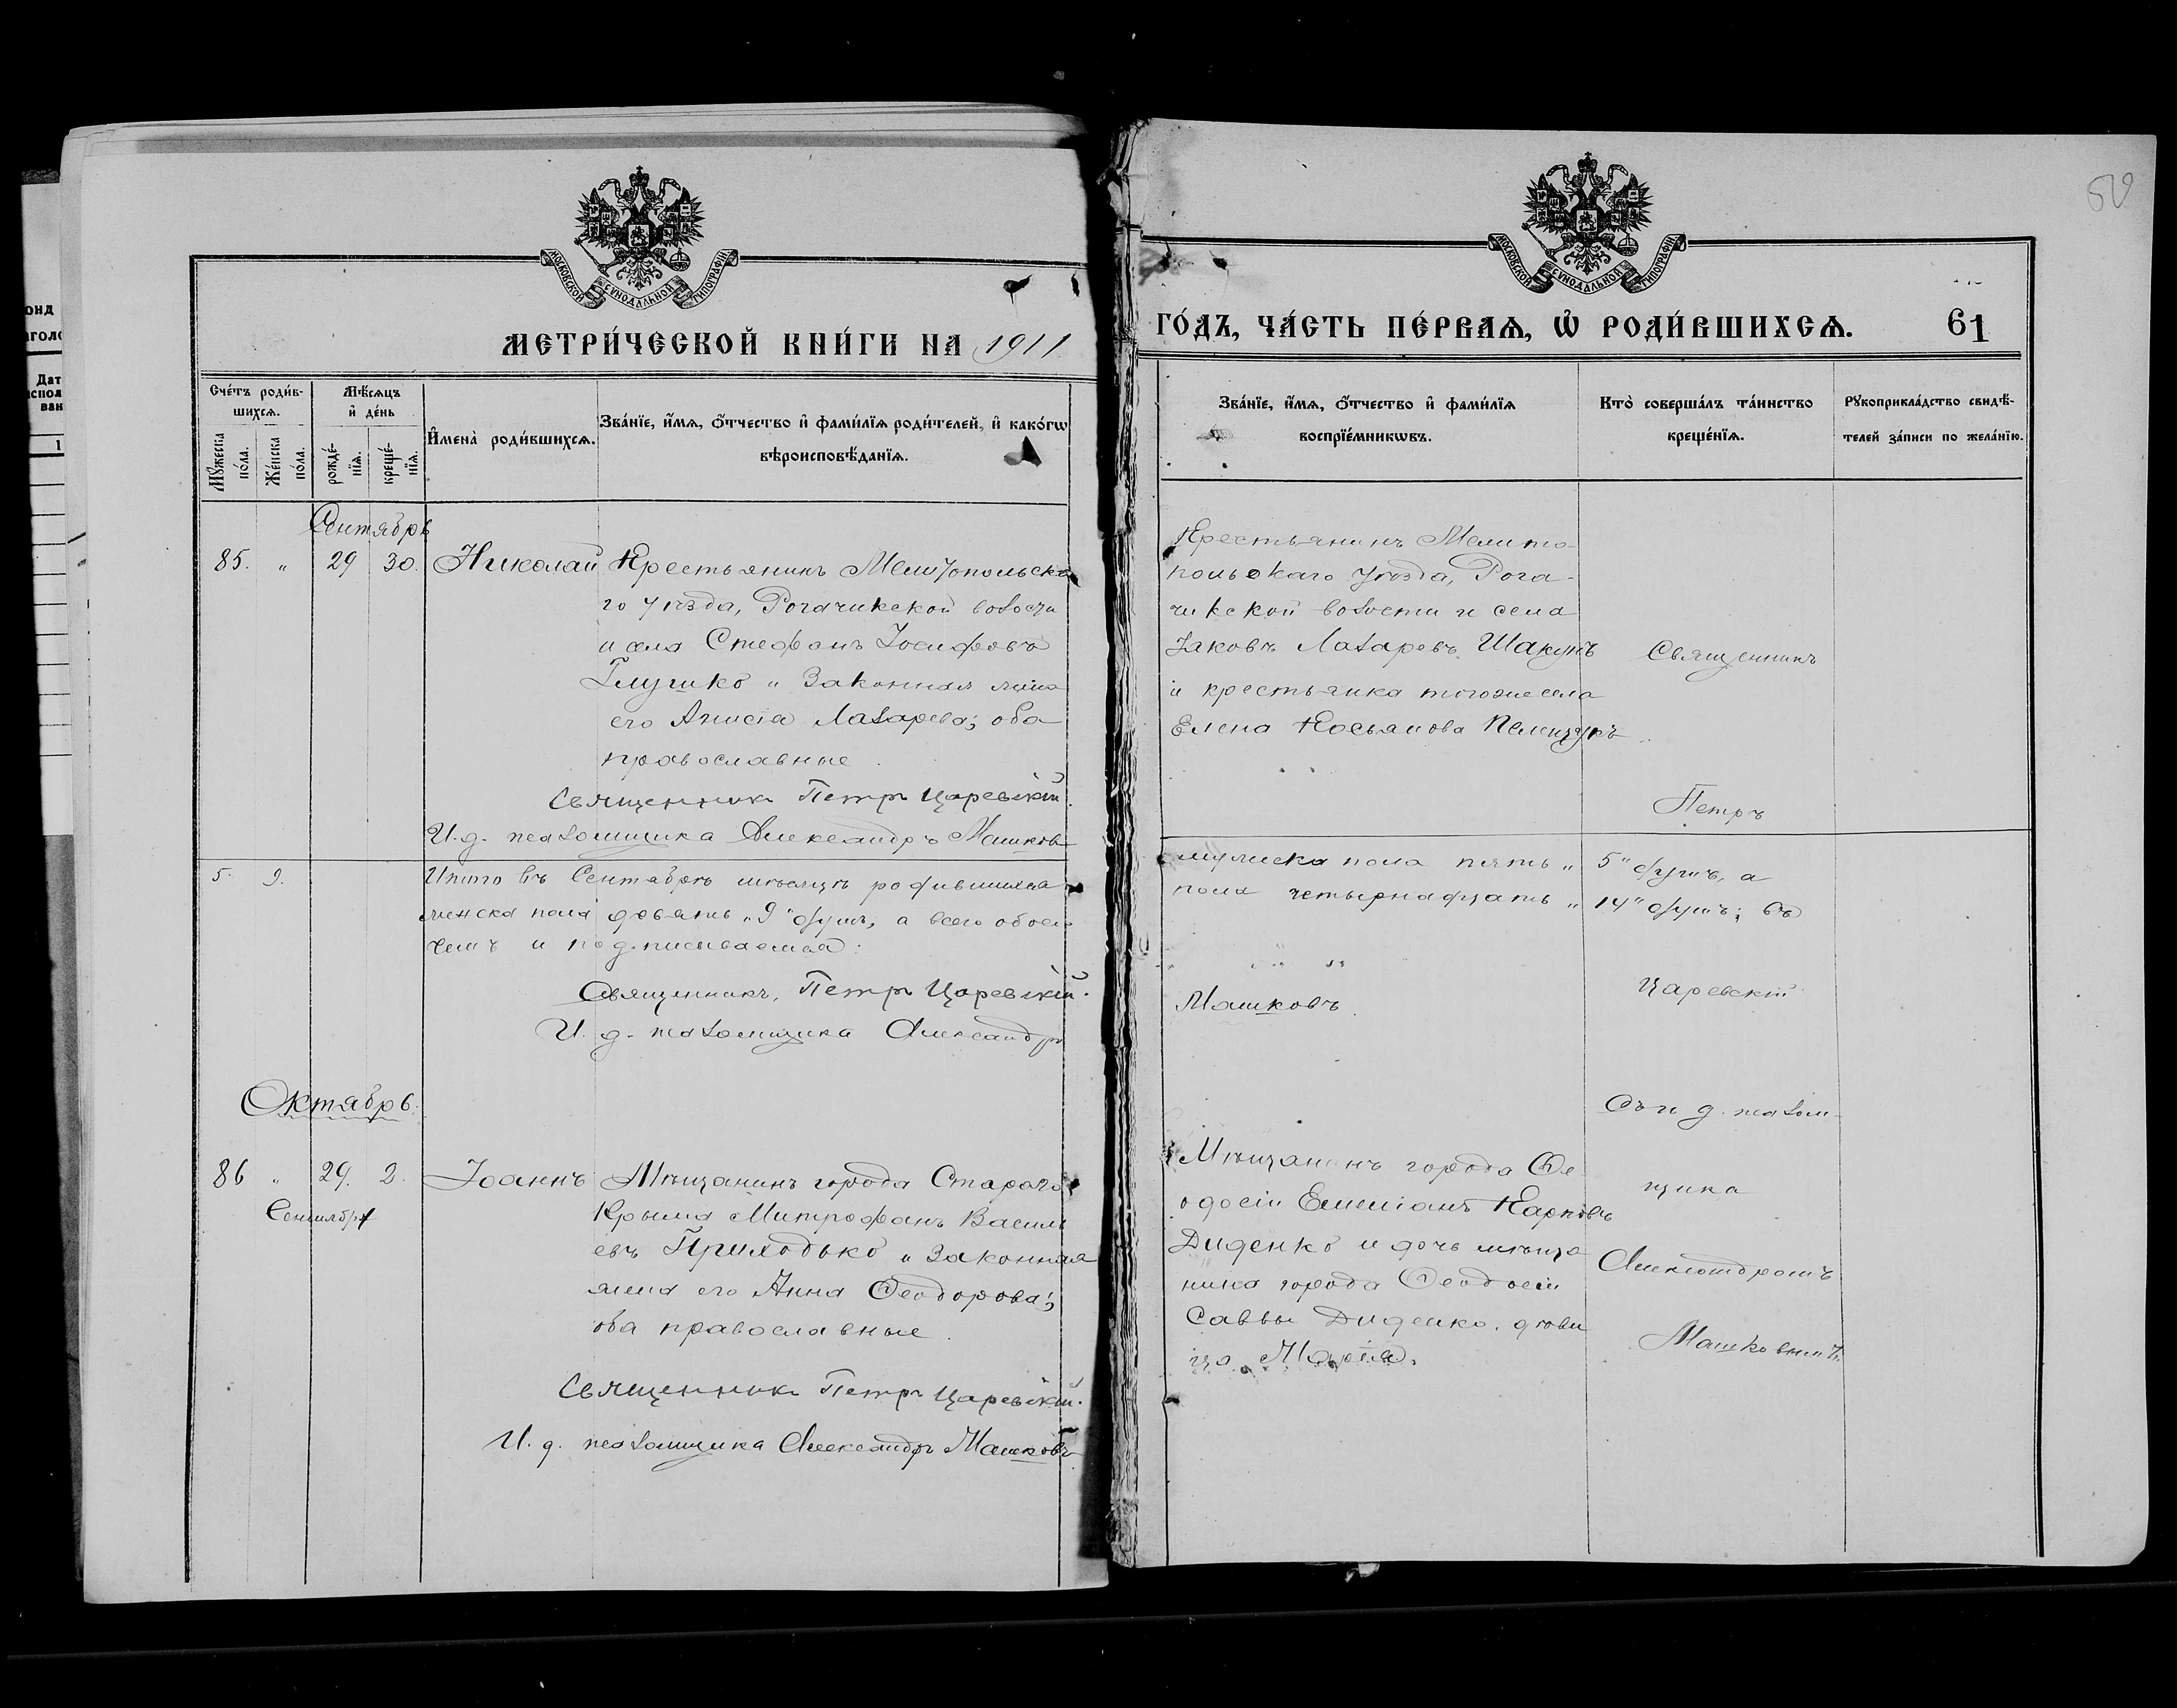 МОСКОВСКОЙ СѴНОДАЛЬНОЙ ТИПОГРАФІИ
МЕТРИ́ЧЕСКОЙ КНИ́ГИ НА 1911
Сче́тъ роди́в-
шихсѧ.
Мѣ́сѧцъ
и҆ де́нь
Мꙋ́жеска
по́ла.
Же́нска
по́ла.
рожде́-
нїѧ.
креще́-
нїѧ.
И҆мена̀ роди́вшихсѧ.
Зва́нїе, и҆́мѧ, ѻ҆́тчество и҆ фами́лїѧ роди́телей, и҆ како́гѡ
вѣроисповѣ́данїѧ.
Сентябрь
85. " 29 30. Николай Крестьянинъ Мелитопольска
го уѣзда, Рогачикской волости
и села Стефанъ Іосифовъ
Глушко и законная жена
его Анисія Лазарева; оба
православные.
Священникъ Петръ Царевскій.
И. д. псаломщика Александръ Машковъ
5. 9. Итого въ Сентябрѣ мѣсяцѣ родившихся
женска пола девять "9" душъ, а всего обоего
чемъ и подписываемся:
Священникъ, Петръ Царевскій.
И. д. псаломщика Александръ
Октябрь.
86 " 29. 2. Іоаннъ Мѣщанинъ города Стараго
Сентября
Крыма Митрофанъ Василь
евъ Приходько и законная
жена его Анна Ѳеодорова;
оба православные.
Священникъ Петръ Царевскій.
И. д. псаломщика Александръ Машковъ
МОСКОВСКОЙ СѴНОДАЛЬНОЙ ТИПОГРАФІИ
ГО́ДЪ, ЧА́СТЬ ПЕ́РВАѦ, Ѡ҆ РОДИ́ВШИХСѦ. 61
Зва́нїе, и҆́мѧ, ѻ҆́тчество и҆ фами́лїѧ
воспрїе́мникѡвъ.
Кто̀ соверша́лъ та́инство
креще́нїѧ.
Рꙋкоприкла́дство свидѣ́-
телей за́писи по жела́нїю.
Крестьянинъ Мелито-
польскаго уѣзда, Рога-
чикской волости и села
Іаковъ Лазаревъ Шакунъ
и крестьянка тогоже села
Елена Касьянова
Священникъ
Петръ
мужска пола пять "5" душъ, а
пола четырнадцать "14" душъ; въ
Машковъ.
Царевскій
Съ и д. псалом-
щика
Александромъ
Машковымъ.
Мѣщанинъ города Ѳе
одосіи Емеліанъ Карповъ
Диденко и дочь мѣща
нина города Ѳеодосіи
Саввы Диденко, дѣви
ца Марія.